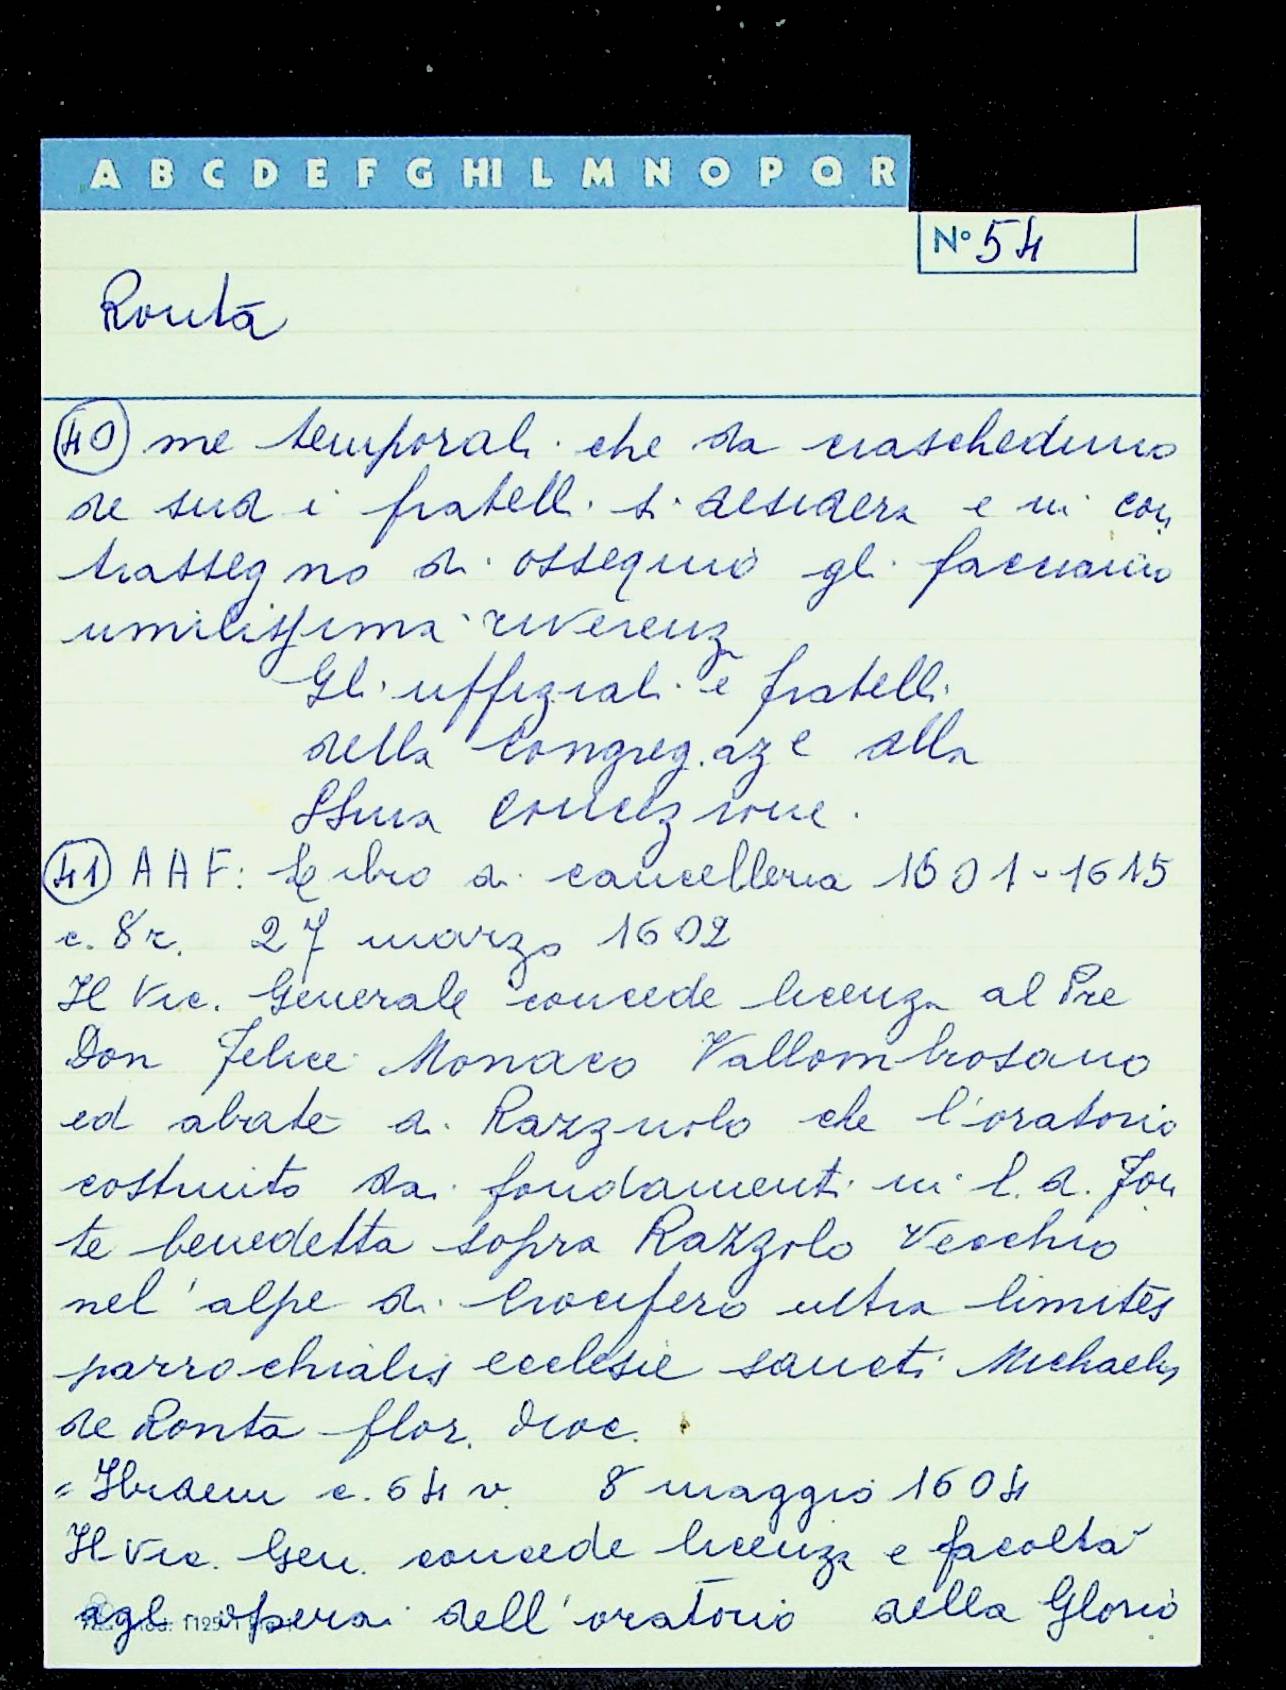 A B C D E F G HI L M N O P Q R
N° 54
Ronta
40 me temporali che da ciascheduno
de sud i fratelli si desidera e in con
trassegno di ossequio gli facciamo
umilissima riverenza
Gli uffiziali e fratelli
della Congreg.aze della
SSma Concezione.
41 AAF: Libro di cancelleria 1601-1615
c. 8r. 27 marzo 1602
Il Vic. Generale concede licenza al Pre
Don Felice Monaco Vallombrosano
ed abate di Razzuolo che l'oratorio
costruito dai fondamenti in l. d. Fon
te benedetta sopra Razzolo Vecchio
nel'alpe di Crocifero ultra limites
parrochialis ecclesie sancti Michaelis
de Ronta flor. dioc.
= Ibidem c. 64 v. 8 maggio 1604
Il Vic. Gen. concede licenza e facoltà
agli operai dell'oratorio della Glorio